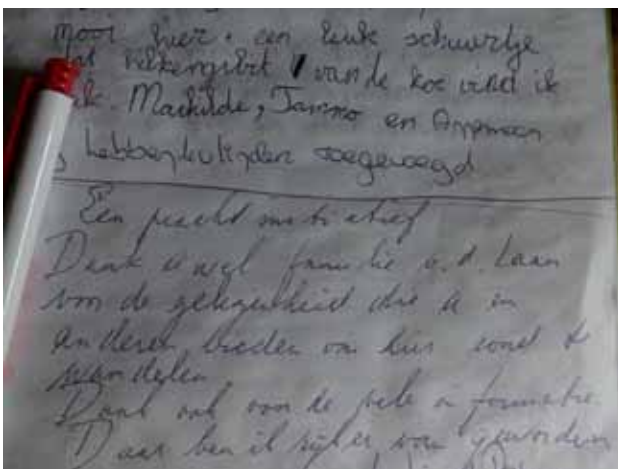 mooi hier. een leuk schuurtje
van de koe vind ik
Machilde, Tammo en
hebben toegevoegd
Een pracht initiatief
Dank u wel familie v.d. Laan
voor de gelegenheid die u
anderen bieden om hier rond te
wandelen.
Dank ook voor de vele informatie.
Daar ben ik wijzer van geworden